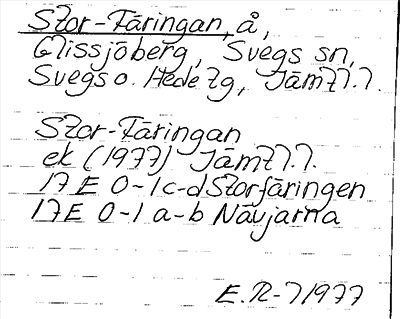 Stor-Fåringan, å,
Glissjöberg, Svegs sn,
Svegs o. Hede tg, Jämtl.l.
Stor-Fåringan
ek (1977) Jämtl.l.
17 E 0-1 c-d Storfåringen
17 E 0-1 a-b Nävjarna
E.R-71977